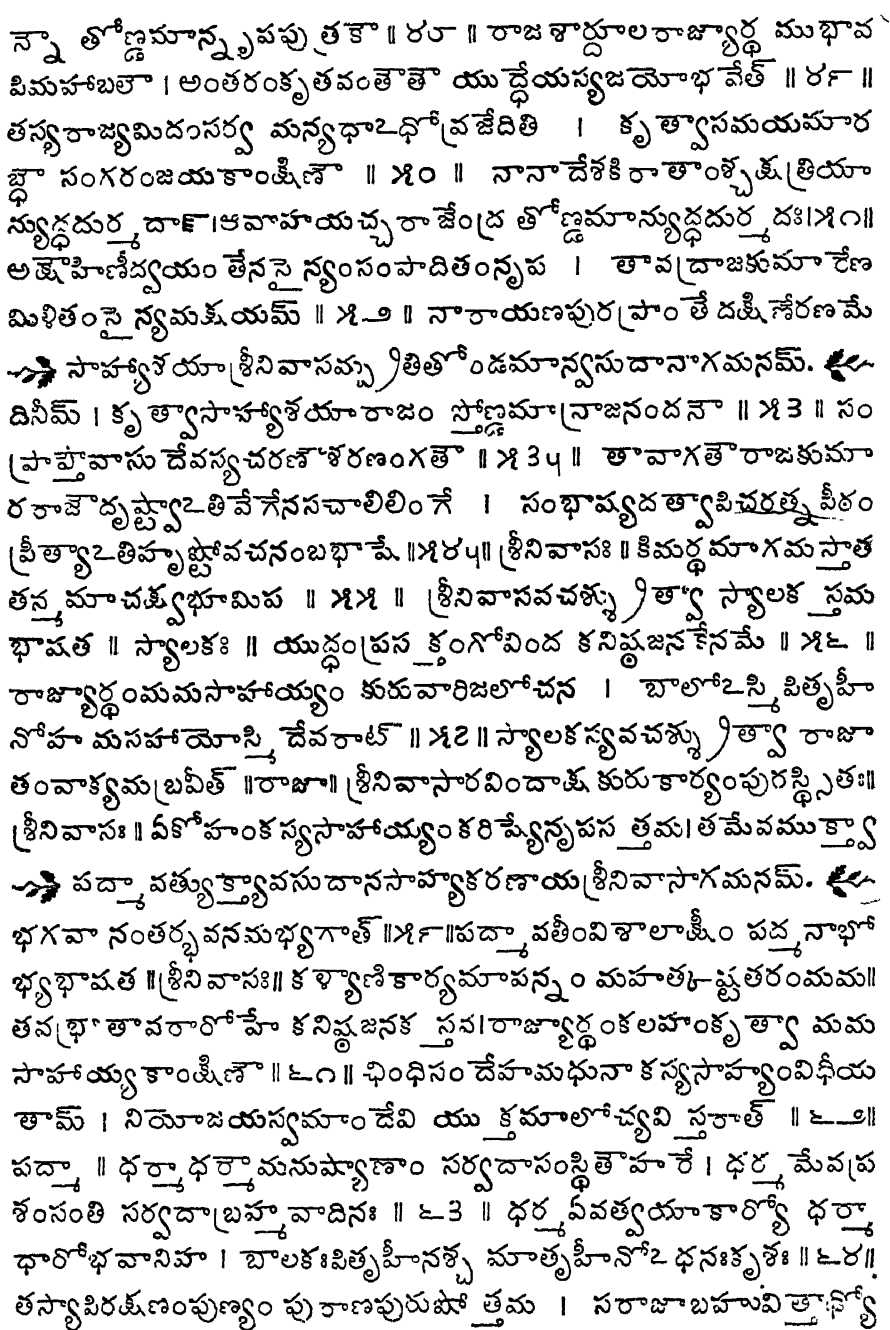 న్నౌ తోణ్డమాన్నృపపుత్రకౌ ॥ ౪౮ ॥ రాజశార్దూలరాజ్యార్థ ముభావ
పిమహాబలౌ । అంతరంకృతవంతౌతౌ యుద్ధేయస్యజయోభవేత్ ॥ ౪౯ ॥
తస్యరాజ్యమిదంసర్వ మన్యథాఽధోవ్రజేదితి । కృత్వాసమయమార
బ్ధౌ సంగరంజయకాంక్షిణౌ ॥ ౫౦ ॥ నానాదేశకిరాతాంశ్చక్షత్రియా
న్యుద్ధదుర్మదాౝ।ఆవాహయచ్చరాజేంద్ర తోణ్డమాన్యుద్ధదుర్మదః।౫౧॥
అక్షౌహిణీద్వయం తేనసైన్యంసంపాదితంనృప । తావద్రాజకుమారేణ
మిళితంసైన్యమక్షయమ్ ॥ ౫౨ ॥ నారాయణపురప్రాంతే దక్షిణేరణమే
సాహ్యాశయాశ్రీనివాసమ్ప్రతితోండమాన్వసుదానాగమనమ్.
దినీమ్ । కృత్వాసాహ్యాశయారాజం స్తోణ్డమాన్రాజనందనౌ ॥ ౫౩ ॥ సం
ప్రాప్తౌవాసుదేవస్యచరణౌశరణంగతౌ ॥ ౫౩౺ ॥ తావాగతౌరాజకుమా
రరాజౌదృష్ట్వాఽతివేగేనసచాలిలింగే । సంభాష్యదత్వాపిచరత్నపీఠం
ప్రీత్యాఽతిహృష్టోవచనంబభాషే॥౫౪౺॥శ్రీనివాసః॥కిమర్థమాగమస్తాత
తన్మమాచక్ష్వభూమిప ॥ ౫౫ ॥ శ్రీనివాసవచశ్శ్రుత్వా స్యాలకస్తమ
భాషత ॥ స్యాలకః ॥ యుద్ధంప్రసక్తంగోవింద కనిష్ఠజనకేనమే ॥ ౫౬ ॥
రాజ్యార్థంమమసాహాయ్యం కురువారిజలోచన । బాలోఽస్మిపితృహీ
నోహ మసహాయోస్మిదేవరాట్ ॥ ౫౭॥ స్యాలకస్యవచశ్శ్రుత్వా రాజా
తంవాక్యమబ్రవీత్ ॥రాజా॥ శ్రీనివాసారవిందాక్షకురుకార్యంపురస్థ్సితః॥
శ్రీనివాసః॥ ఏకోహంకస్యసాహాయ్యంకరిష్యేనృపసత్తమ।తమేవముక్త్వా
పద్మావత్యుక్త్యావసుదానసాహ్యకరణాయశ్రీనివాసాగమనమ్.
భగవా నంతర్భవనమభ్యగాత్॥౫౯॥పద్మావతీంవిశాలాక్షీం పద్మనాభో
భ్యభాషత ॥శ్రీనివాసః॥ కళ్యాణికార్యమాపన్నం మహత్కష్టతరంమమ॥
తవభ్రాతావరారోహే కనిష్ఠజనకస్తవ।రాజ్యార్థంకలహంకృత్వా మమ
సాహాయ్యకాంక్షిణౌ ॥ ౬౧॥ ఛింధిసందేహమధునా కస్యసాహ్యంవిధీయ
తామ్ । నియోజయస్వమాందేవి యుక్తమాలోచ్యవిస్తరాత్ ॥ ౬౨॥
పద్మా ॥ ధర్మాధర్మౌమనుష్యాణాం సర్వదాసంస్థితౌహరే । ధర్మమేవప్ర
శంసంతి సర్వదాబ్రహ్మవాదినః ॥ ౬౩ ॥ ధర్మఏవత్వయాకార్యో ధర్మా
ధారోభవానిహ । బాలకఃపితృహీనశ్చ మాతృహీనోఽధనఃకృశః ॥౬౪॥
తస్యాపిరక్షణంపుణ్యం పురాణపురుషోత్తమ । సరాజాబహువిత్తాఢ్యో